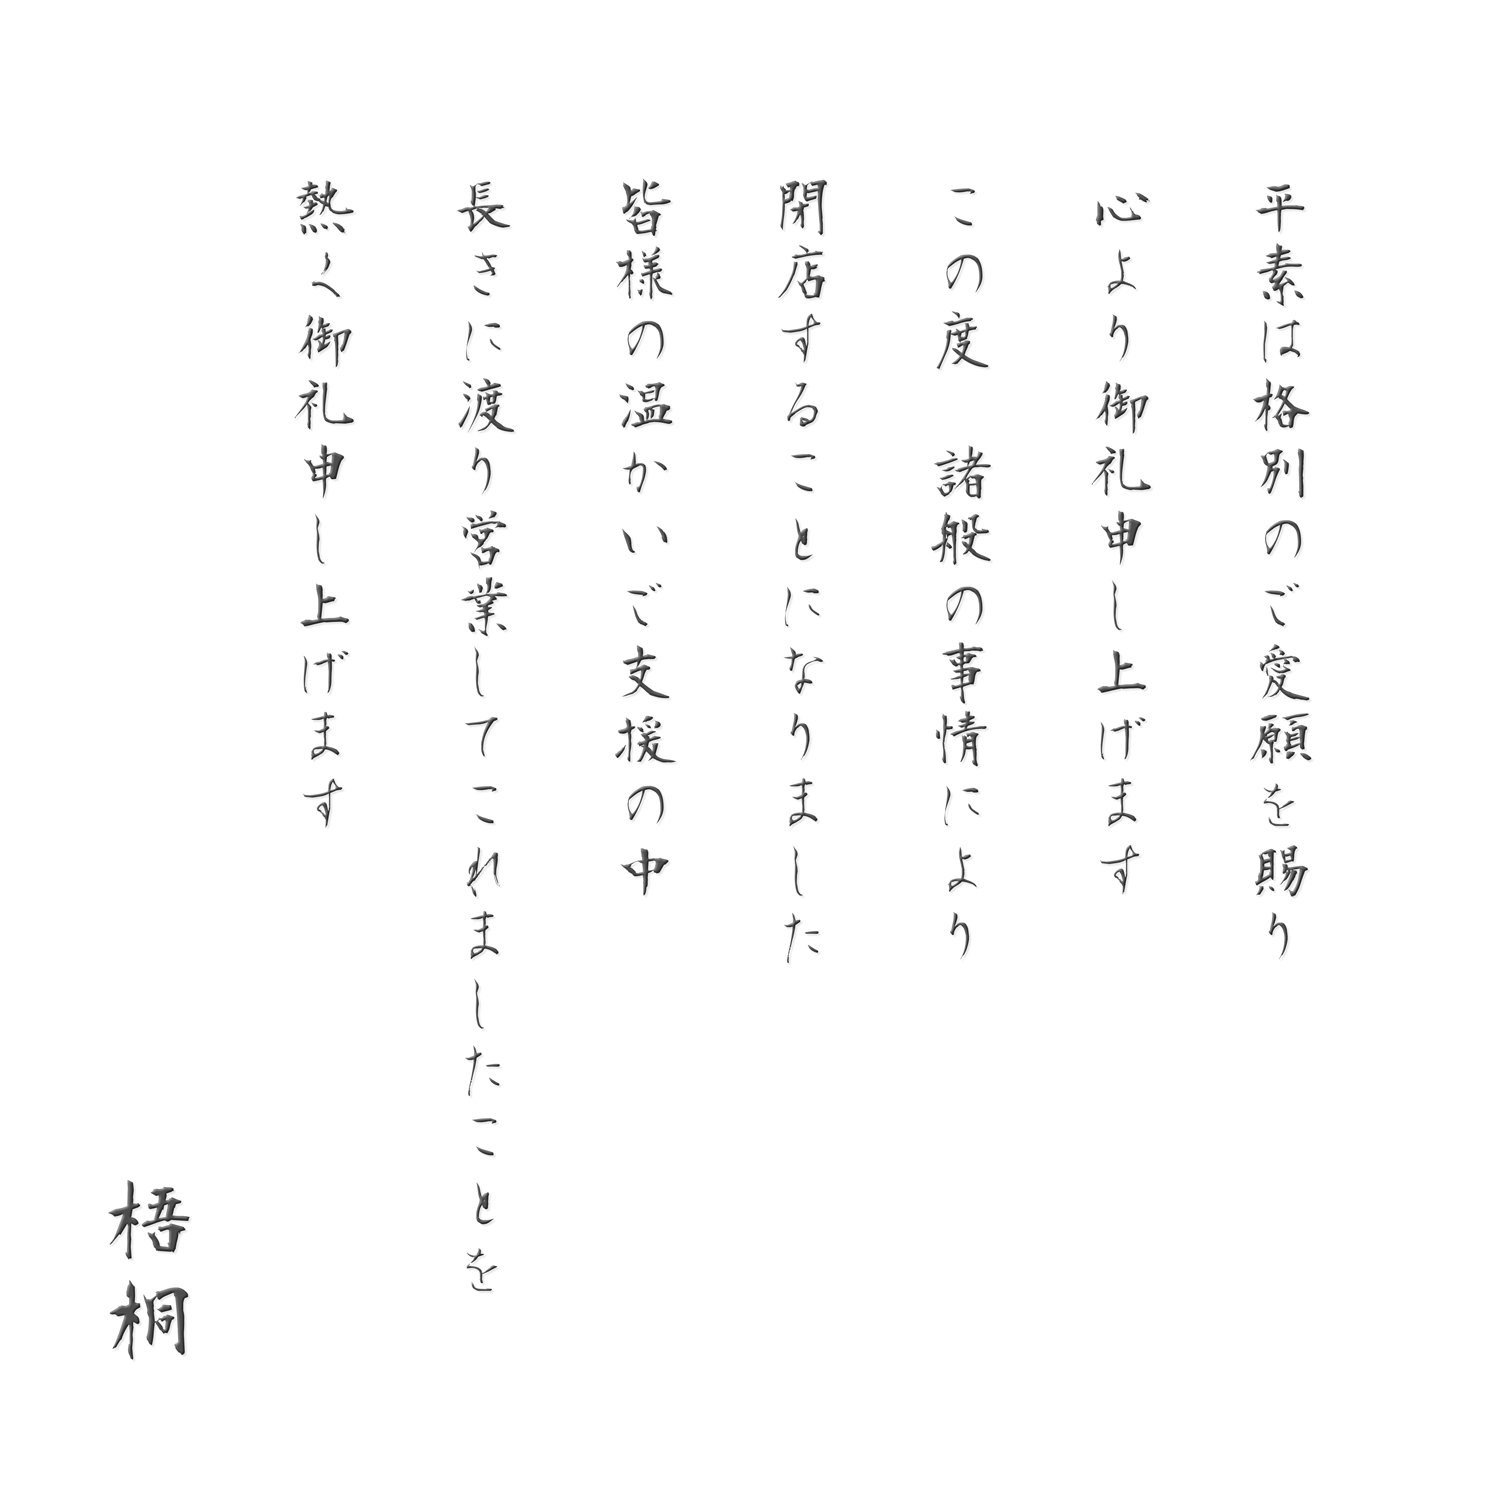 平素は格別のご愛願を賜り
心より御礼申し上げます
この度　諸般の事情により
閉店することになりました
皆様の温かいご支援の中
長さに渡り営業してこれましたことを
熱く御礼申し上げます
梧桐